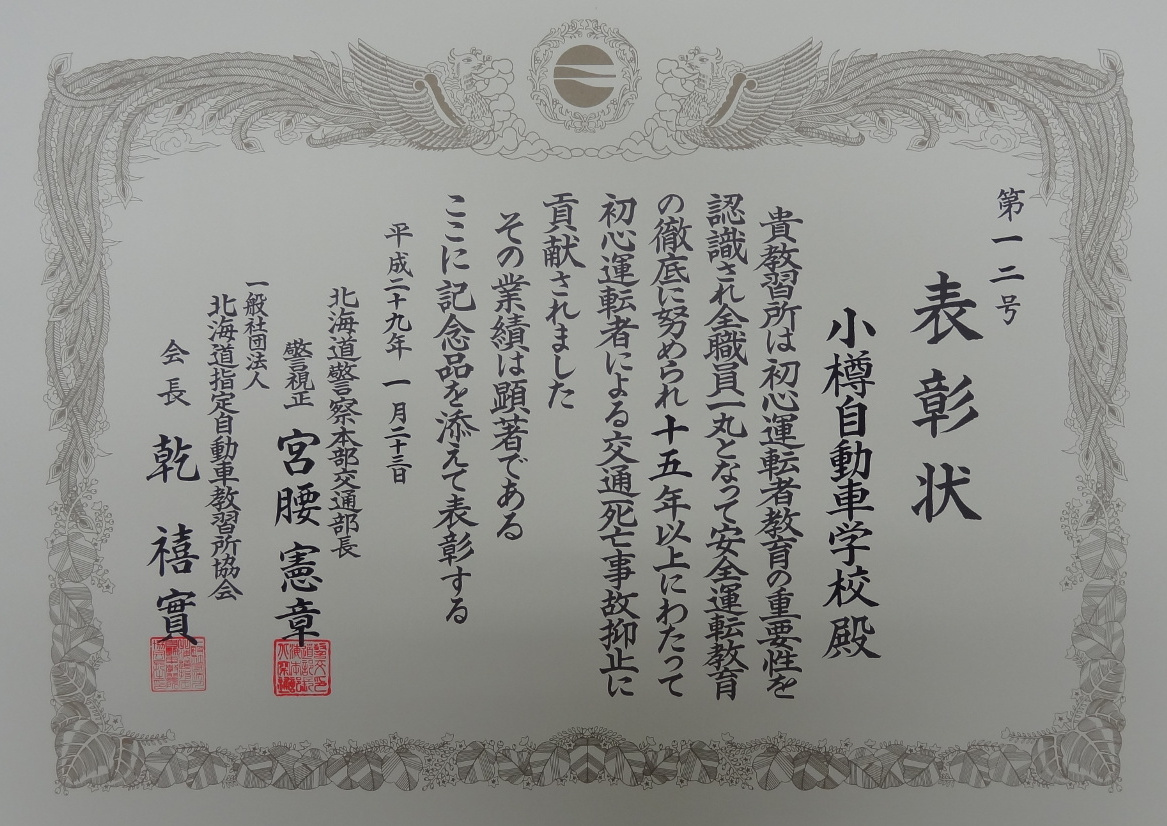 第一二号
表彰状
小樽自動車学校殿
貴教習所は初心運転者教育の重要性を
認識され全職員一丸となって安全運転教育
の徹底に努められ十五年以上にわたって
初心運転者による交通死亡事故抑止に
貢献されました
その業績は顕著である
ここに記念品を添えて表彰する
平成二十九年一月二十三日
北海道警察本部交通部長
警視正 宮腰憲章
一般社団法人
北海道指定自動車教習所協会
会長 乾禧實